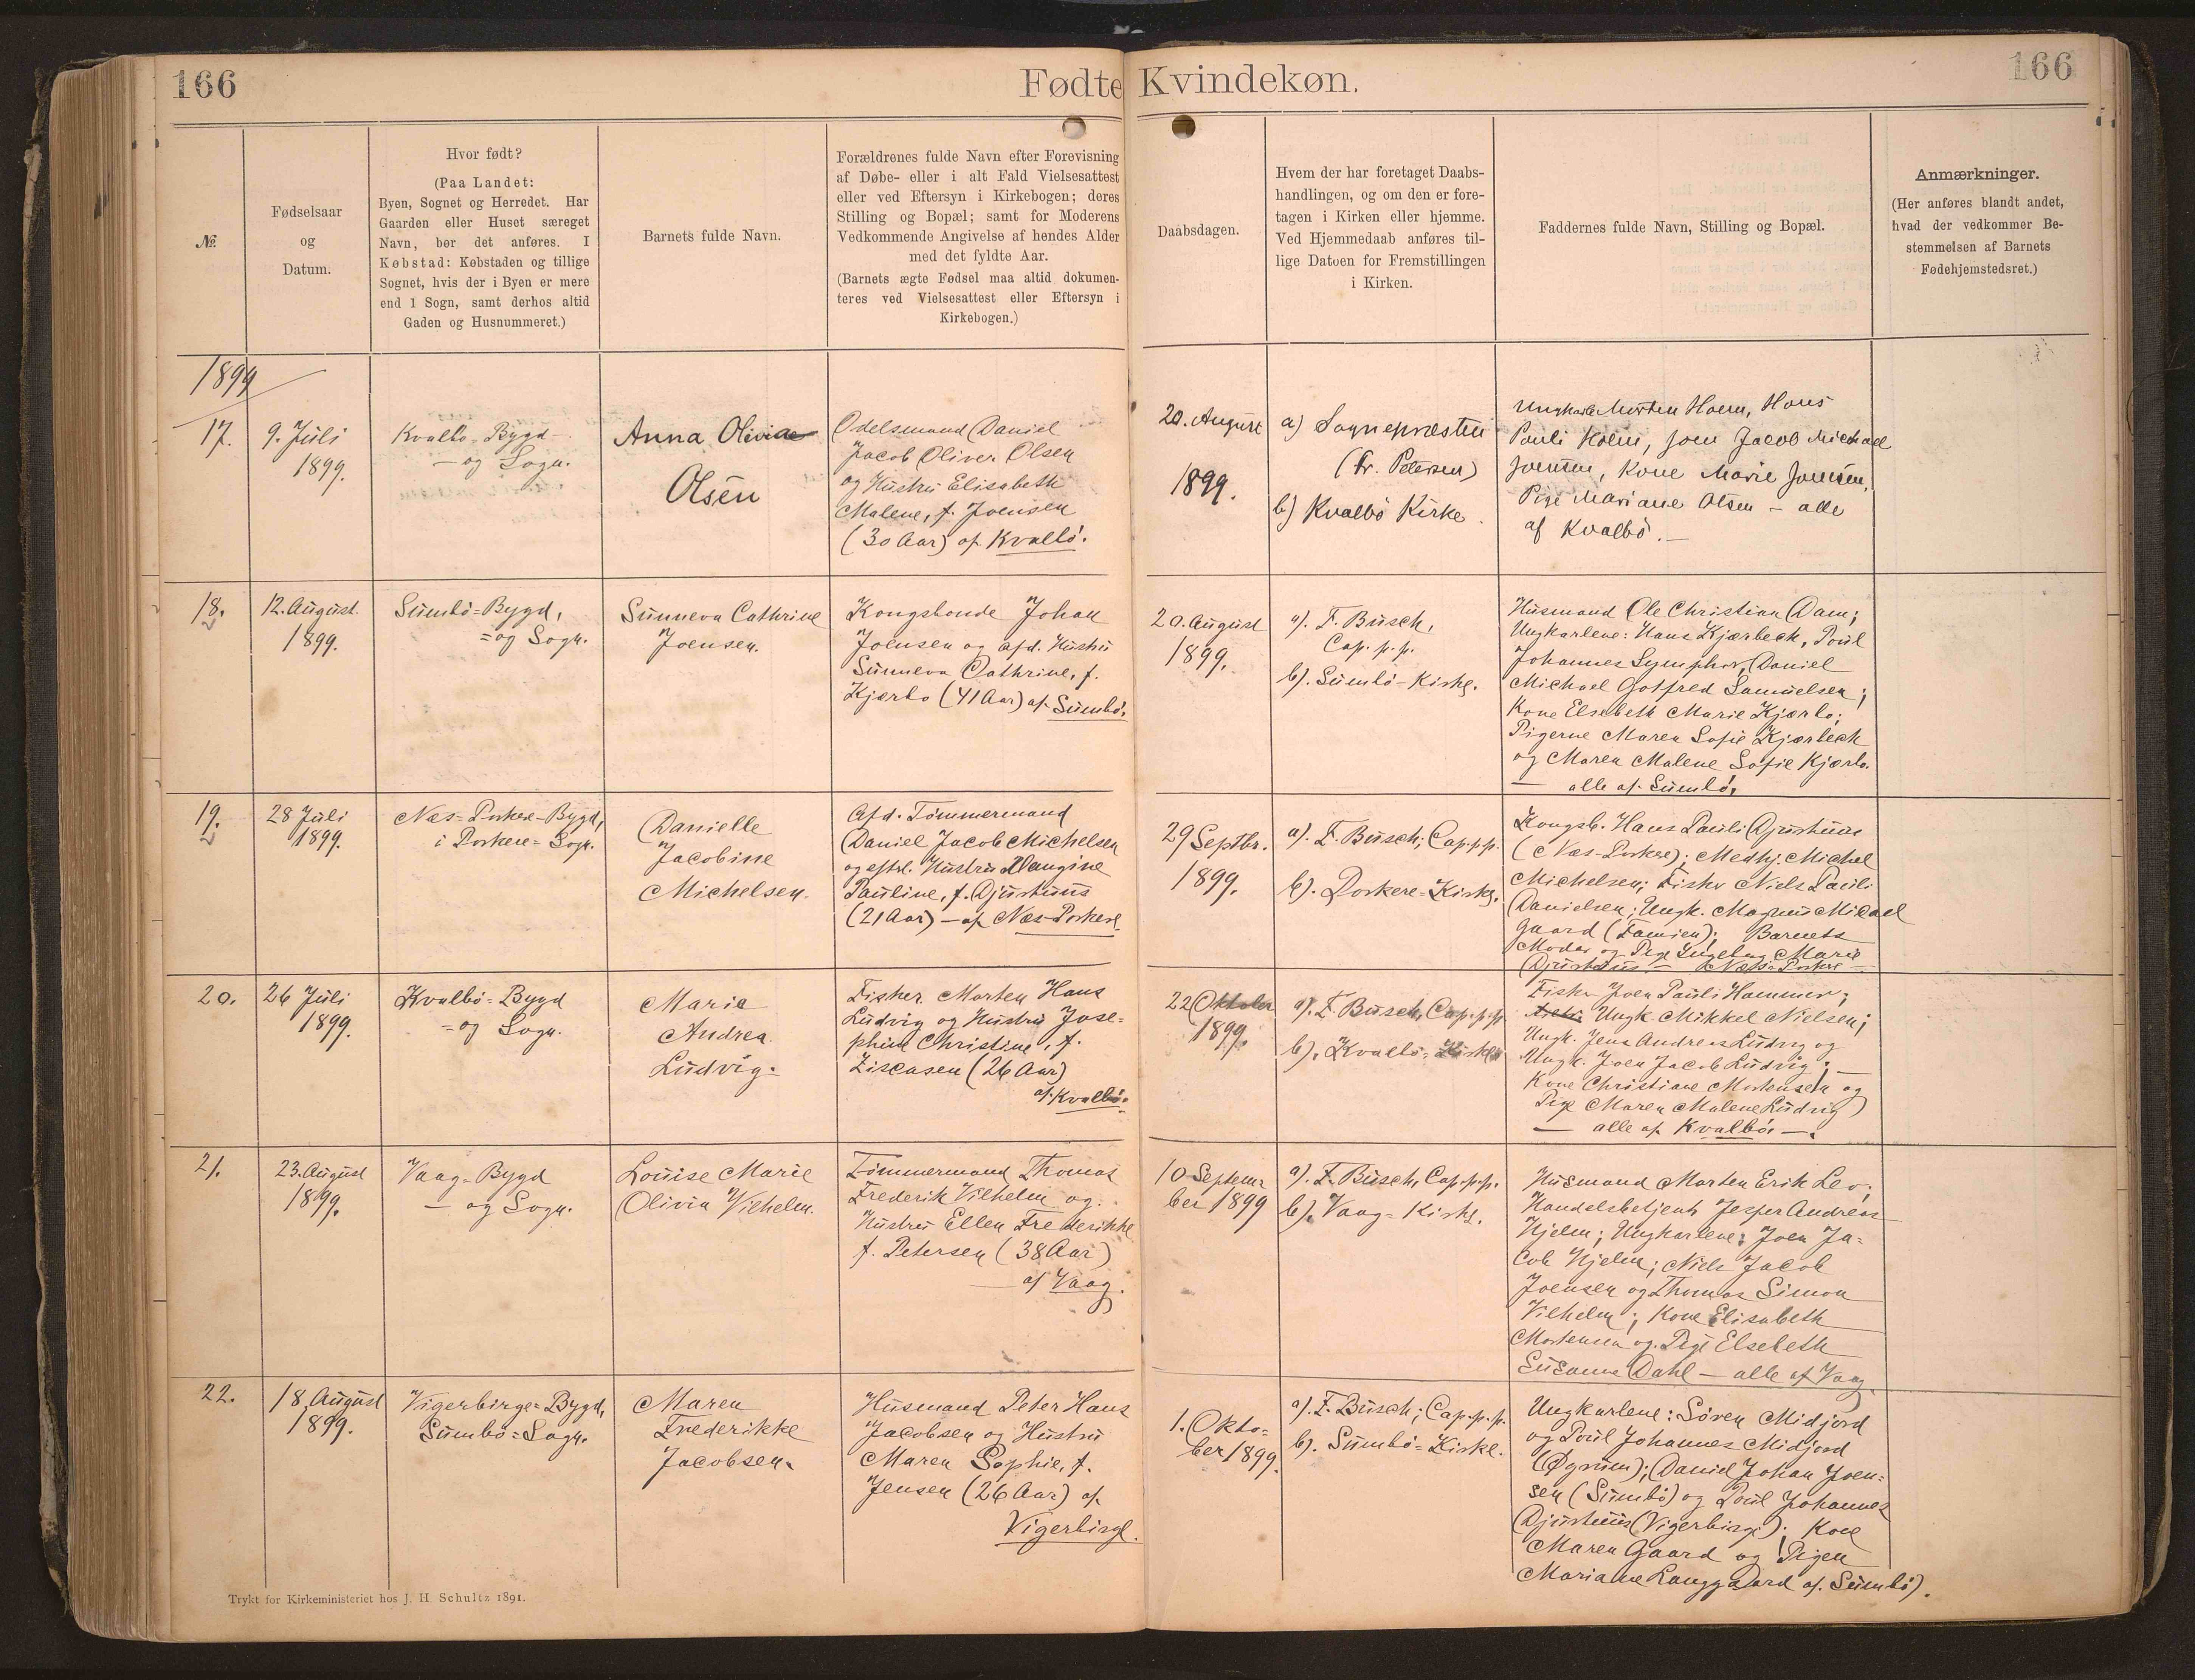 166
Fødte Kvindekøn.
166
№
Fødselsaar
og
Datum.
Hvor født?
(Paa Landet:
Byen, Sognet og Herredet. Har
Gaarden eller Huset særeget
Navn, bør det anføres. I
Købstad: Købstaden og tillige
Sognet, hvis der i Byen er mere
end 1 Sogn, samt derhos altid
Gaden og Husnummeret.)
Barnets fulde Navn.
Forældrenes fulde Navn efter Forevisning
af Døbe- eller i alt Fald Vielsesattest
eller ved Eftersyn i Kirkebogen; deres
Stilling og Bopæl; samt for Moderens
Vedkommende Angivelse af hendes Alder
med det fyldte Aar.
(Barnets ægte Fødsel maa altid dokumen-
teres ved Vielsesattest eller Eftersyn i
Kirkebogen.)
Daabsdagen.
Hvem der har foretaget Daabs-
handlingen, og om den er fore-
tagen i Kirken eller hjemme.
Ved Hjemmedaab anføres til-
lige Datoen for Fremstillingen
i Kirken.
Faddernes fulde Navn, Stilling og Bopæl.
Anmærkninger.
(Her anføres blandt andet,
hvad der vedkommer Be-
stemmelsen af Barnets
Fødehjemstedsret.)
1899
17.
9. Juli
1899.
Kvalbø-Bygd
- og Sogn.
Anna Olivia
Olsen
Odelsmand Daniel
Jacob Oliver Olsen
og Hustru Elisabeth
Malene, f. Joensen
(30 Aar) af Kvalbö.
20. August
1899.
a) Sognepræsten
(Fr. Petersen)
b) Kvalbö Kirke.
Ungkarle Morten Holm, Hans
Pauli Holm, Joen Jacob Michael
Joensen, Kone Marie Joensen,
Pige Mariane Olsen - alle
af Kvalbö.-
18.
12. August
1899.
Sumbö-Bygd,
= og Sogn.
Sunneva Cathrine
Joensen.
Kongsbonde Johan
Joensen og afd. Hustru
Sunneva Cathrine, f.
Kjærbo (41 Aar) af Sumbö.
20. August
1899.
a). F. Busch,
Cap. p. p.
b). Sumbö-Kirke.
Husmand Ole Christian Dam;
Ungkarlene: Hans Kjærbeck, Poul
Johannes Symphor, Daniel
Michael Gotfred Samuelsen;
Kone Elsebeth Marie Kjærbo;
Pigerne Maren Sofie Kjærbeck
og Maren Malene Sofie Kjærbo.
- alle af Sumbö.
19.
28 Juli
1899.
Næs-Porkere-Bygd,
i Porkere-Sogn.
Danielle
Jacobine
Michelsen.
Afd. Tömmermand
Daniel Jacob Michelsen
og eftl. Hustru
Pauline, f. Djurhuus
(21 Aar) - af Næs-Porkere.
29 Septbr.
1899.
a). F. Busch, Cap. p. p.
b). Porkere-Kirke.
Kongsb. Hans Pauli Djurhuus
(Næs-Porkere); Medhj. Michel
Michelsen; Fisker Niels Pauli
Danielsen; Ungk. Magnus Micael
Gaard (Famien); Barnets
Moder og Pige Ingeborg Marie
Djurhuus - Næs-Porkere -
20.
26 Juli
1899.
Kvalbö-Bygd
= og Sogn.
Maria
Andrea
Ludvig.
Fisker Morten Hans
Ludvig og Hustru Jose=
phine Christine, f.
(26 Aar)
af Kvalbö.
22 Oktober
1899.
a). F. Busch, Cap. p. p.
b). Kvalbö-Kirke
Fisker Joen Pauli Hammer;
Ungk. Mikkel Nielsen;
Ungk. Jens Andreas Ludvig og
Ungk. Joen Jacob Ludvig; -
Kone Christiane Mortensen og
Pige Maren Malene Ludvig
- alle af Kvalbö. -
21.
23. August
1899.
Vaag-Bygd
- og Sogn.
Louise Marie
Olivia Vilhelm.
Tömmermand Thomas
Frederik Vilhelm og
Hustru Ellen Frederikke
f. Petersen (38 Aar)
af Vaag.
10 Septem=
ber 1899
a). F. Busch, Cap. p. p.
b). Vaag-Kirke.
Husmand Morten Erik Leo;
Handelsbetjent Jesper Andreas
Hjelm; Ungkarlene: Joen Ja=
cob Hjelm; Niels Jacob
Joensen og Thomas Simon
Vilhelm; Kone Elisabeth
Mortensen og Pige Elsebeth
Susanna Dahl - alle af Vaag.
22.
18 August
1899.
Vigerbirge-Bygd,
Sumbö-Sogn.
Maren
Frederikke
Jacobsen.
Husmand Peter Hans
Jacobsen og Hustru
Maren Sophie, f.
Jensen (26 Aar) af
Vigerbirge.
1. Okto=
ber 1899.
a). F. Busch; Cap. p. p.
b). Sumbö-Kirke.
Ungkarlene: Sören Midjord
og Poul Johannes Midjord
(Øgnun); Daniel Johan Joen=
sen (Sumbö) og Poul Johannes
Djurhuus (Vigerbirge); Kone
Maren Gaard og Pigen
Mariane Langgaard af Sumbö).
Trykt for Kirkeministeriet hos J. H. Schultz 1891.